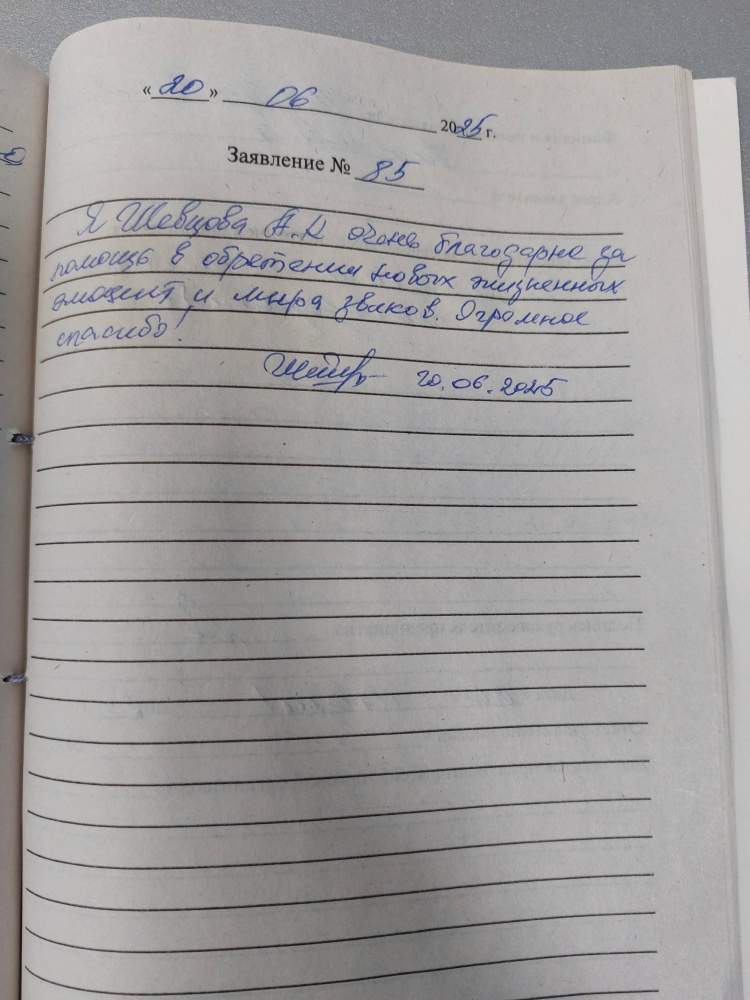 «20» 06 2025 г.
Заявление № 85
Я Шевцова А.К очень благодарна за
помощь в обретении новых жизненных
эмоций и мира звуков. Огромное
спасибо!
20.06.2025